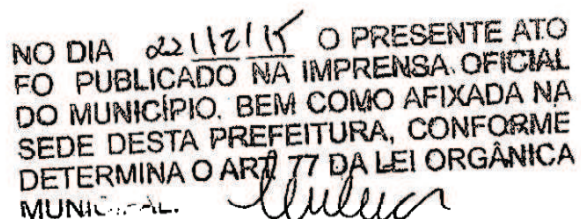 NO DIA 22/12/15 O PRESENTE ATO
FO PUBLICADO NA IMPRENSA OFICIAL
DO MUNICÍPIO. BEM COMO AFIXADA NA
SEDE DESTA PREFEITURA, CONFORME
DETERMINA O ART. 77 DA LEI ORGÂNICA